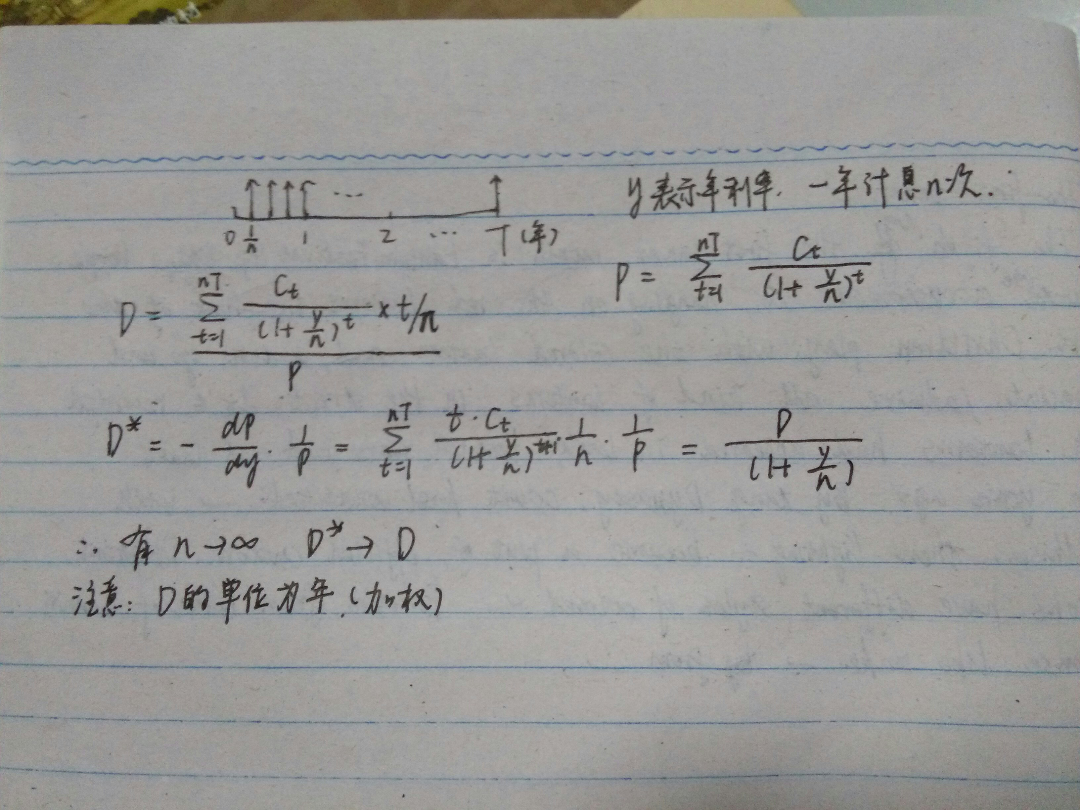 y表示年利率. 一年计息n次.
0 1/n 1 2 ... T(年)
P = \sum_{t=1}^{nT} \frac{C_t}{(1+\frac{y}{n})^t}
D = \frac{\sum_{t=1}^{nT} \frac{C_t}{(1+\frac{y}{n})^t} × t/n}{P}
D* = - \frac{dP}{dy} · \frac{1}{P} = \sum_{t=1}^{nT} \frac{t·C_t}{(1+\frac{y}{n})^{t+1}} \frac{1}{n} · \frac{1}{P} = \frac{D}{(1+\frac{y}{n})}
∴ 有 n→∞ D*→D
注意: D的单位为年.(加权)